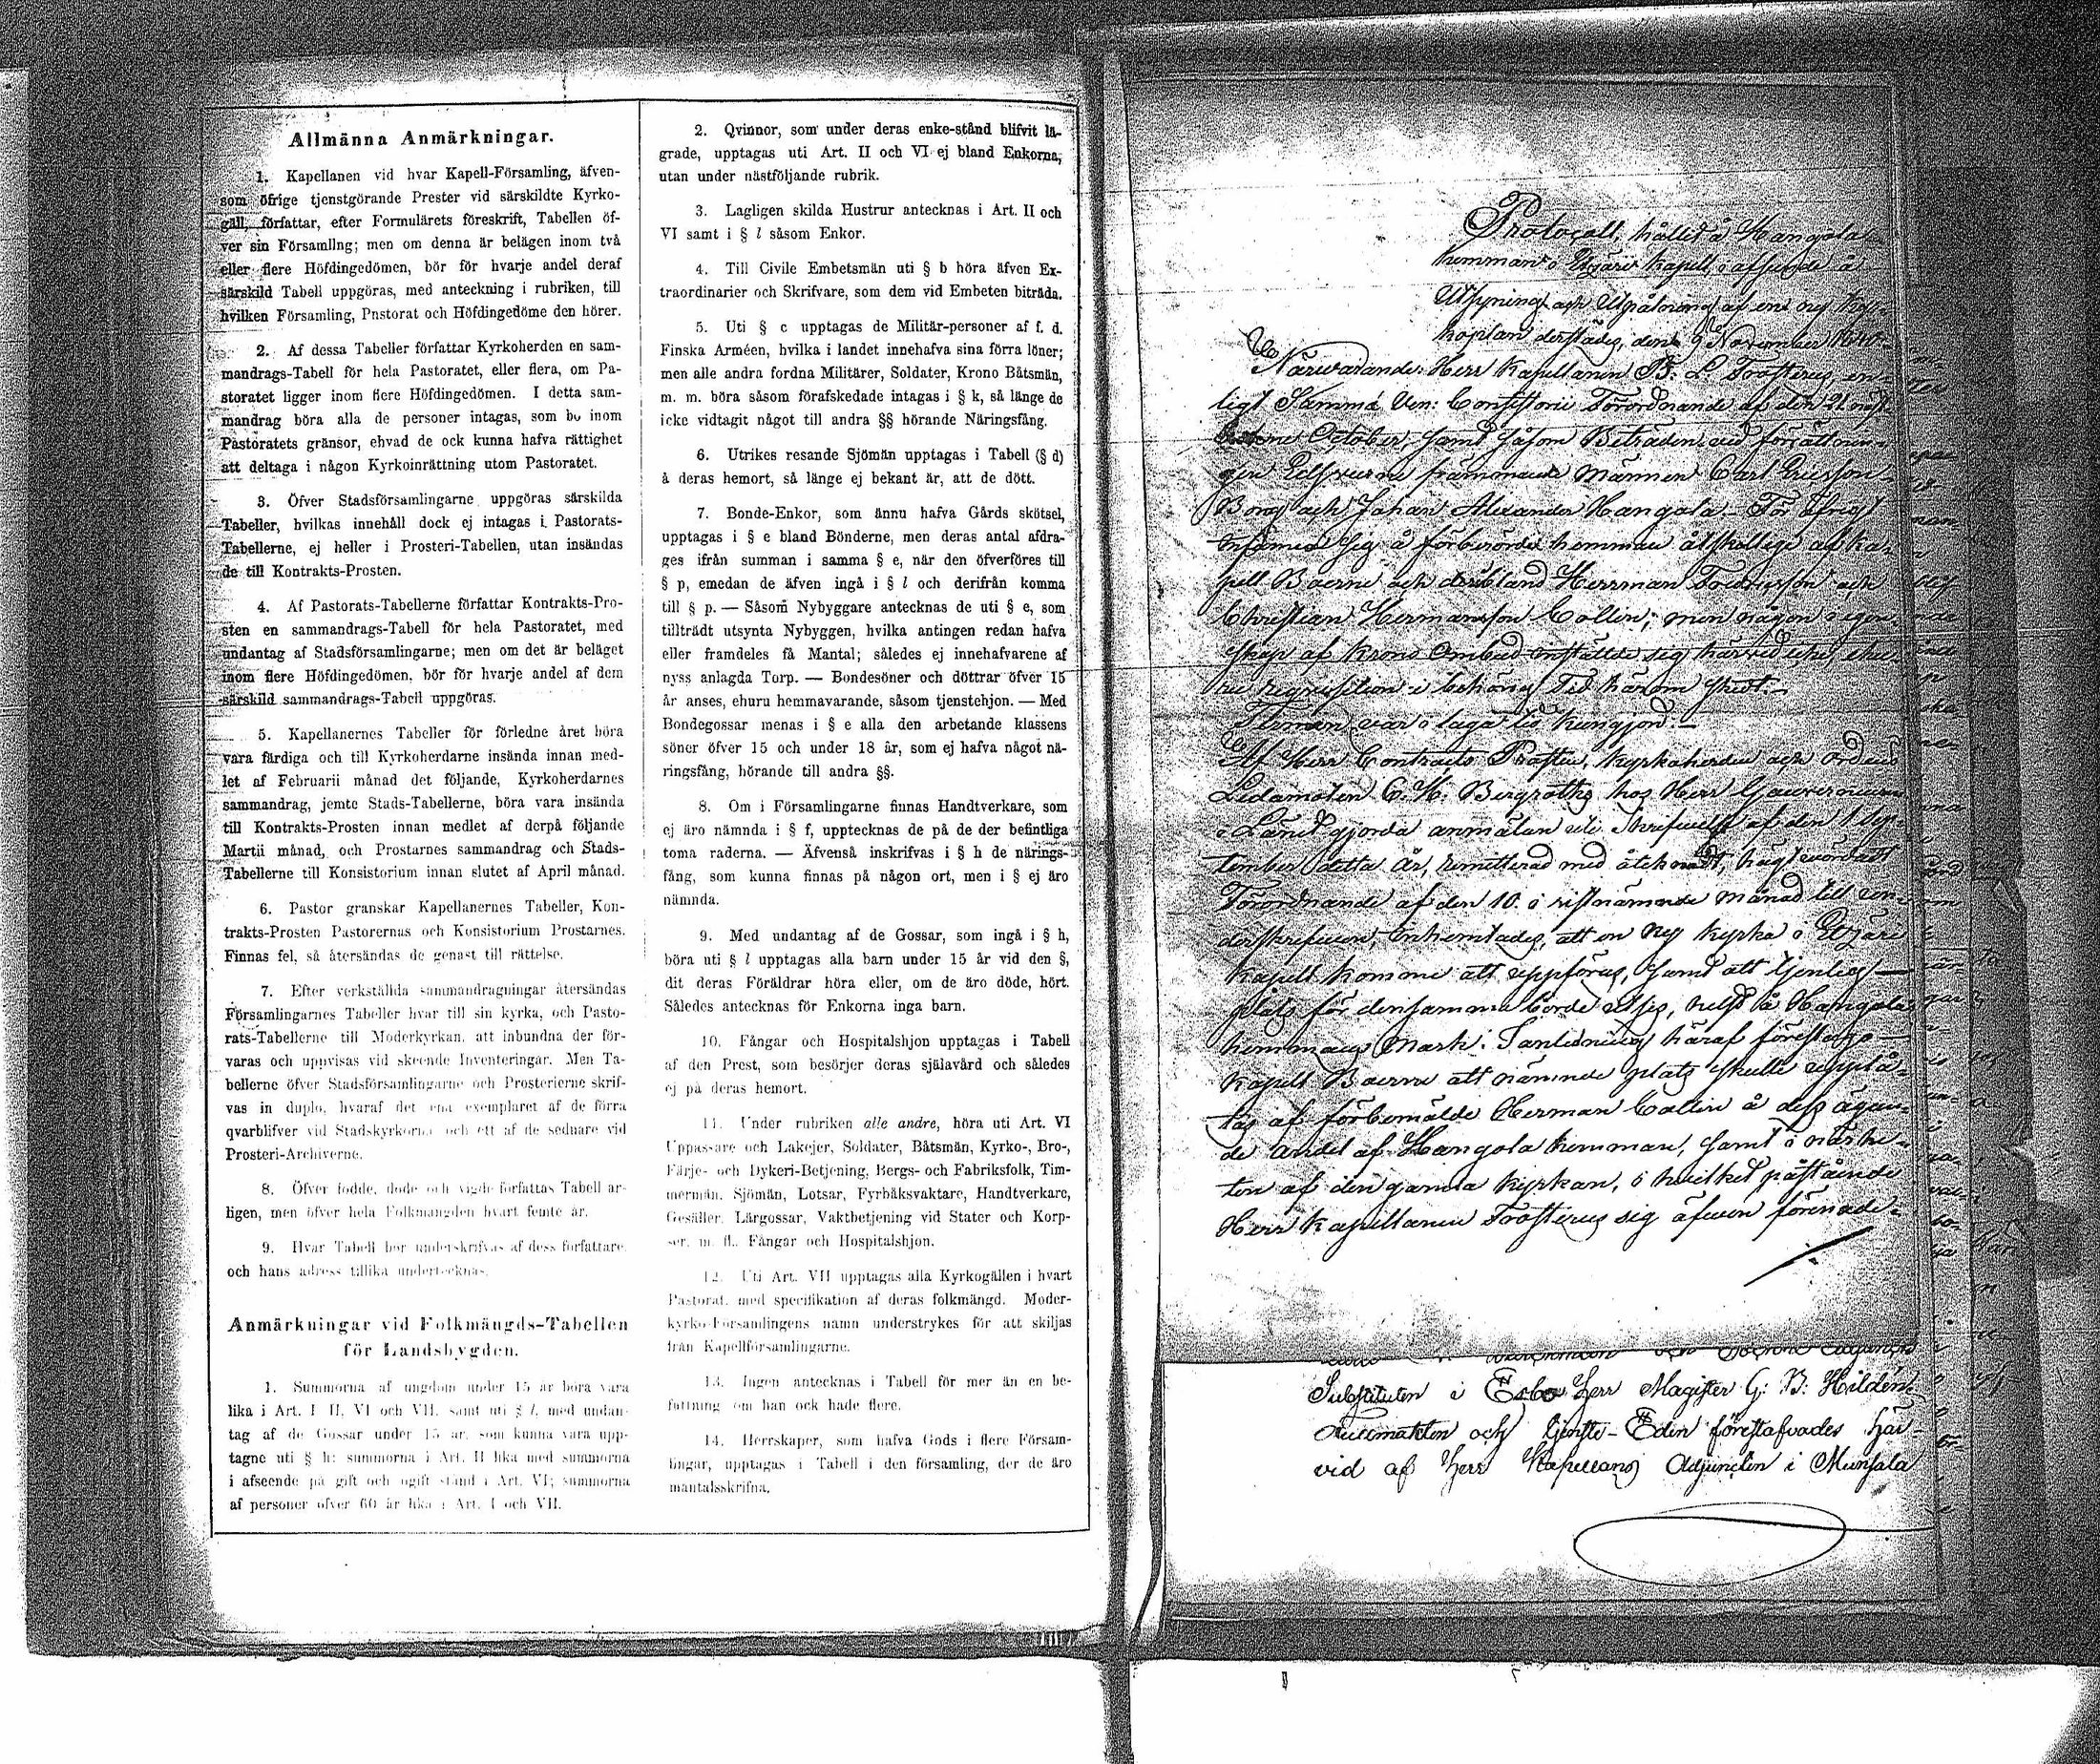 Allmänna Anmärkningar.
1. Kapellanen vid hvar Kapell-Församling, äfven-
som öfrige tjenstgörande Prester vid särskildte Kyrko-
gäll, författar, efter Formulärets föreskrift, Tabellen öf-
ver sin Församling; men om denna är belägen inom två
eller flere Höfdingedömen, bör för hvarje andel deraf
särskild Tabell uppgöras, med anteckning i rubriken, till
hvilken Församling, Pastorat och Höfdingedöme den hörer.
2. Af dessa Tabeller författar Kyrkoherden en sam-
mandrags-Tabell för hela Pastoratet, eller flera, om Pa-
storatet ligger inom flere Höfdingedömen. I detta sam-
mandrag böra alla de personer intagas, som bo inom
Pastoratets gränsor, ehvad de ock kunna hafva rättighet
att deltaga i någon Kyrkoinrättning utom Pastoratet.
3. Öfver Stadsförsamlingarne uppgöras särskilda
Tabeller, hvilkas innehåll dock ej intagas i Pastorats-
Tabellerne, ej heller i Prosteri-Tabellen, utan insändas
de till Kontrakts-Prosten.
4. Af Pastorats-Tabellerne författar Kontrakts-Pro-
sten en sammandrags-Tabell för hela Pastoratet, med
undantag af Stadsförsamlingarne; men om det är beläget
inom flere Höfdingedömen, bör för hvarje andel af dem
särskild sammandrags-Tabell uppgöras.
5. Kapellanernes Tabeller för förledne året böra
vara färdiga och till Kyrkoherdarne insända innan med-
let af Februarii månad det följande, Kyrkoherdarnes
sammandrag, jemte Stads-Tabellerne, böra vara insända
till Kontrakts-Prosten innan medlet af derpå följande
Martii månad, och Prostarnes sammandrag och Stads-
Tabellerne till Konsistorium innan slutet af April månad.
6. Pastor granskar Kapellanernes Tabeller, Kon-
trakts-Prosten Pastorernas och Konsistorium Prostarnes.
Finnas fel, så återsändas de genast till rättelse.
7. Efter verkställda sammandragningar återsändas
Församlingarnes Tabeller hvar till sin kyrka, och Pasto-
rats-Tabellerne till Moderkyrkan, att inbundna der för-
varas och uppvisas vid skeende Inventeringar. Men Ta-
bellerne öfver Stadsförsamlingarne och Prosterierne skrif-
vas in duplo, hvaraf det ena exemplaret af de förra
qvarblifver vid Stadskyrkorna och ett af de sednare vid
Prosteri-Archiverne.
8. Öfver födde, döde och vigde författas Tabell år-
ligen, men öfver hela Folkmängden hvart femte år.
9. Hvar Tabell bör underskrifvas af dess författare,
och hans adress tillika undertecknas.
Anmärkningar vid Folkmängds-Tabellen
för Landsbygden.
1. Summorna af ungdom under 15 år böra vara
lika i Art. I II, VI och VII, samt uti § l, med undan-
tag af de Gossar under 15 år, som kunna vara upp-
tagne uti § h: summorna i Art. II lika med summorna
i afseende på gift och ogift stånd i Art. VI; summorna
af personer öfver 60 år lika i Art. I och VII.
2. Qvinnor, som under deras enke-stånd blifvit lä-
grade, upptagas uti Art. II och VI ej bland Enkorna,
utan under nästföljande rubrik.
3. Lagligen skilda Hustrur antecknas i Art. II och
VI samt i § l såsom Enkor.
4. Till Civile Embetsmän uti § b höra äfven Ex-
traordinarier och Skrifvare, som dem vid Embeten biträda.
5. Uti § c upptagas de Militär-personer af f. d.
Finska Arméen, hvilka i landet innehafva sina förra löner;
men alle andra fordna Militärer, Soldater, Krono Båtsmän,
m. m. böra såsom förafskedade intagas i § k, så länge de
icke vidtagit något till andra §§ hörande Näringsfång.
6. Utrikes resande Sjömän upptagas i Tabell (§ d)
å deras hemort, så länge ej bekant är, att de dött.
7. Bonde-Enkor, som ännu hafva Gårds skötsel,
upptagas i § e bland Bönderne, men deras antal afdra-
ges ifrån summan i samma § e, när den öfverföres till
§ p, emedan de äfven ingå i § l och derifrån komma
till § p. — Såsom Nybyggare antecknas de uti § e, som
tillträdt utsynta Nybyggen, hvilka antingen redan hafva
eller framdeles få Mantal; således ej innehafvarene af
nyss anlagda Torp. — Bondesöner och döttrar öfver 15
år anses, ehuru hemmavarande, såsom tjenstehjon. — Med
Bondegossar menas i § e alla den arbetande klassens
söner öfver 15 och under 18 år, som ej hafva något nä-
ringsfång, hörande till andra §§.
8. Om i Församlingarne finnas Handtverkare, som
ej äro nämnda i § f, upptecknas de på de der befintliga
toma raderna. — Äfvenså inskrifvas i § h de närings-
fång, som kunna finnas på någon ort, men i § ej äro
nämnda.
9. Med undantag af de Gossar, som ingå i § h,
böra uti § l upptagas alla barn under 15 år vid den §,
dit deras Föräldrar höra eller, om de äro döde, hört.
Således antecknas för Enkorna inga barn.
10. Fångar och Hospitalshjon upptagas i Tabell
af den Prest, som besörjer deras själavård och således
ej på deras hemort.
11. Under rubriken alle andre, höra uti Art. VI
Uppassare och Lakejer, Soldater, Båtsmän, Kyrko-, Bro-,
Färje- och Dykeri-Betjening, Bergs- och Fabriksfolk, Tim-
mermän, Sjömän, Lotsar, Fyrbåksvaktare, Handtverkare,
Gesäller, Lärgossar, Vaktbetjening vid Stater och Korp-
ser, m. fl., Fångar och Hospitalshjon.
12. Uti Art. VII upptagas alla Kyrkogällen i hvart
Pastorat, med specifikation af deras folkmängd. Moder-
kyrko-Församlingens namn understrykes för att skiljas
från Kapellförsamlingarne.
13. Ingen antecknas i Tabell för mer än en be-
fattning, om han ock hade flere.
14. Herrskaper, som hafva Gods i flere Försam-
lingar, upptagas i Tabell i den församling, der de äro
mantalsskrifna.
Protocoll, hållit å Hangola
hemman i Etzäri Kapell, i afseende å
Utsyning och Utpålning af en ny Kyr-
koplan derstädes, den 9 November 1840.
Närvarande: Herr Kapellanen B. L. Frosterus, en-
ligt Samma Ven: Consistorii Förordnande af den 21 näst-
October, samt såsom Biträden vid förrättnin-
gen männen Carl Ericsson
och Johan Alexander Hangola. För öfrigt
sig å förberörde hemman åtskillige af Ka-
pell Boerne och deribland Herrman och
Christian Hermansson Collin; men någon i egen-
skap af Krono Ombud inställde sig härvid icke, ehu-
ru requisition i behörig tid härom skedt.
Timan var i laga tid kungjord.
Af Herr Contracts Prosten, Kyrkoherden och Ordens
Ledamoten C. H. Bergroths hos Herr Gouverneuren
i Länet gjorda anmälan uti skrifvelse af den 1 Sep-
tember detta år, remitterad med åtecknadt, högt vördadt
Förordnande af den 10 i sistnämnde månad till un-
derskrifven, inhemtades, att en ny kyrka i Etzäri
Kapell komme att uppföras, samt att tjenlig
plats för densamma borde utses, helst å Hangola
hemmans mark. I anledning häraf föreslogo
Kapell Boerne att nämnde plats skulle upplå-
tas af förbemälde Herman Collin å dess ägan-
de andel af Hangola hemman, samt i närhe-
ten af den gamla kyrkan, i hvilket påstående
Herr Kapellanen Frosterus sig äfven förenade.
Substituten i Esbo Herr Magister G: B: Hildén.
och Tjenste-Eden förestafvades här-
vid af Herr Kapellans Adjuncten i Munsala